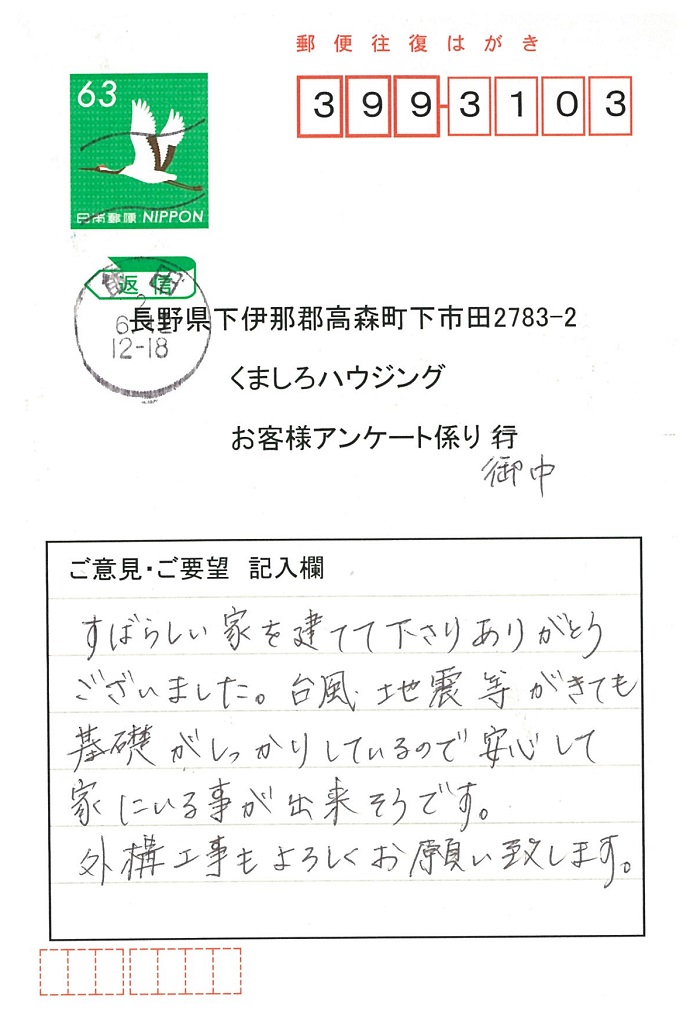 郵便往復はがき
63
3993103
日本郵便 NIPPON
返信
6
2
12-18
長野県下伊那郡高森町下市田2783-2
くましろハウジング
お客様アンケート係り 行
御中
ご意見・ご要望 記入欄
すばらしい家を建てて下さりありがとう
ございました。台風、地震等がきても
基礎がしっかりしているので安心して
家にいる事が出来そうです。
外構工事もよろしくお願い致します。